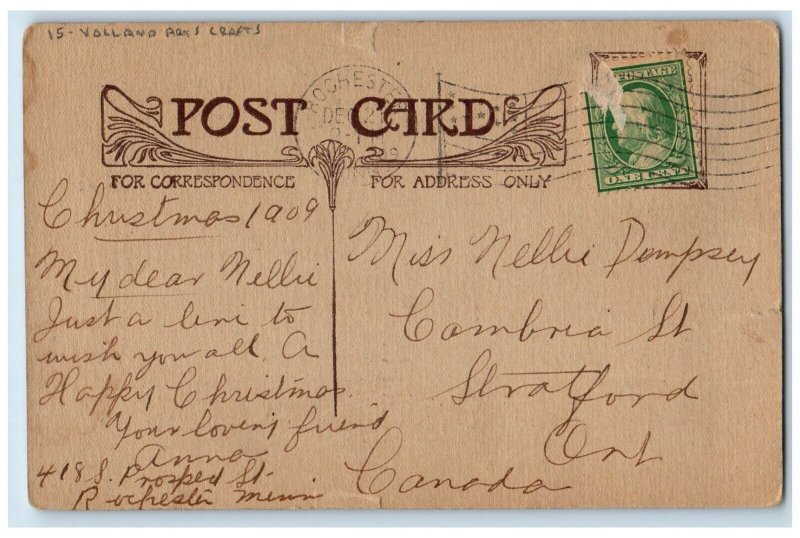 15- VOLLAND ARTS CRAFTS
POST CARD
ROCHESTER
DEC 2
POSTAGE
ONE CENT
FOR CORRESPONDENCE
FOR ADDRESS ONLY
Christmas 1909
My dear Nellie
Just a line to
wish you all A
Happy Christmas
Your loving friend
Anna
418 S. Prospect St.
Rochester Minn
Miss Nellie Dempsey
Cambria St
Stratford
Ont
Canada